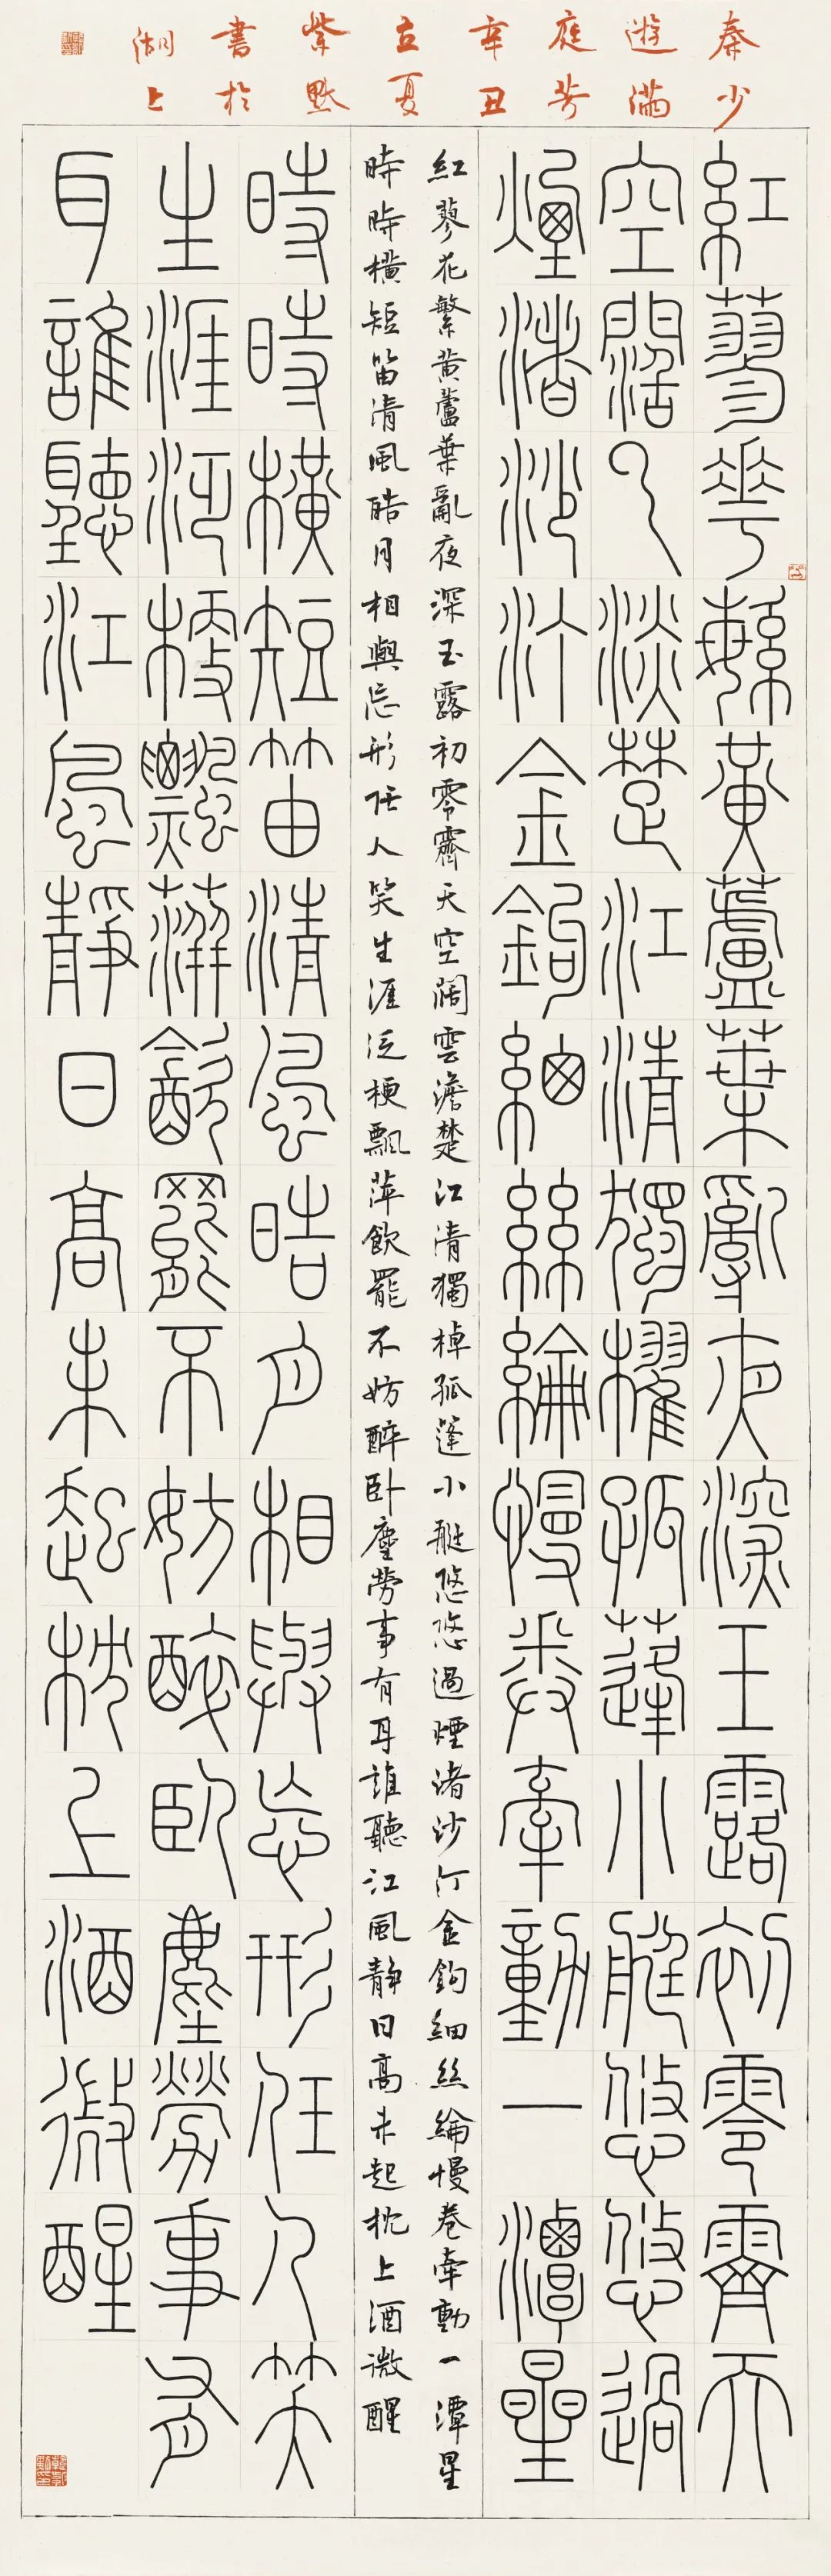 秦少
遊滿
庭芳
辛丑
立夏
紫默
書於
湖上
紅蓼花繁黃蘆葉亂夜深玉露初零霽天
空闊雲淡楚江清獨櫂孤蓬小艇悠悠過
煙渚沙汀金鉤細絲綸慢卷牽動一潭星
紅蓼花繁黃蘆葉亂夜深玉露初零霽天空闊雲澹楚江清獨棹孤蓬小艇悠悠過煙渚沙汀金鉤細絲綸慢卷牽動一潭星
時時橫短笛清風皓月相與忘形任人笑生涯泛梗飄萍飲罷不妨醉臥塵勞事有耳誰聽江風靜日高未起枕上酒微醒
時時橫短笛清風皓月相與忘形任人笑
生涯泛梗飄萍飲罷不妨醉臥塵勞事有
耳誰聽江風靜日高未起枕上酒微醒